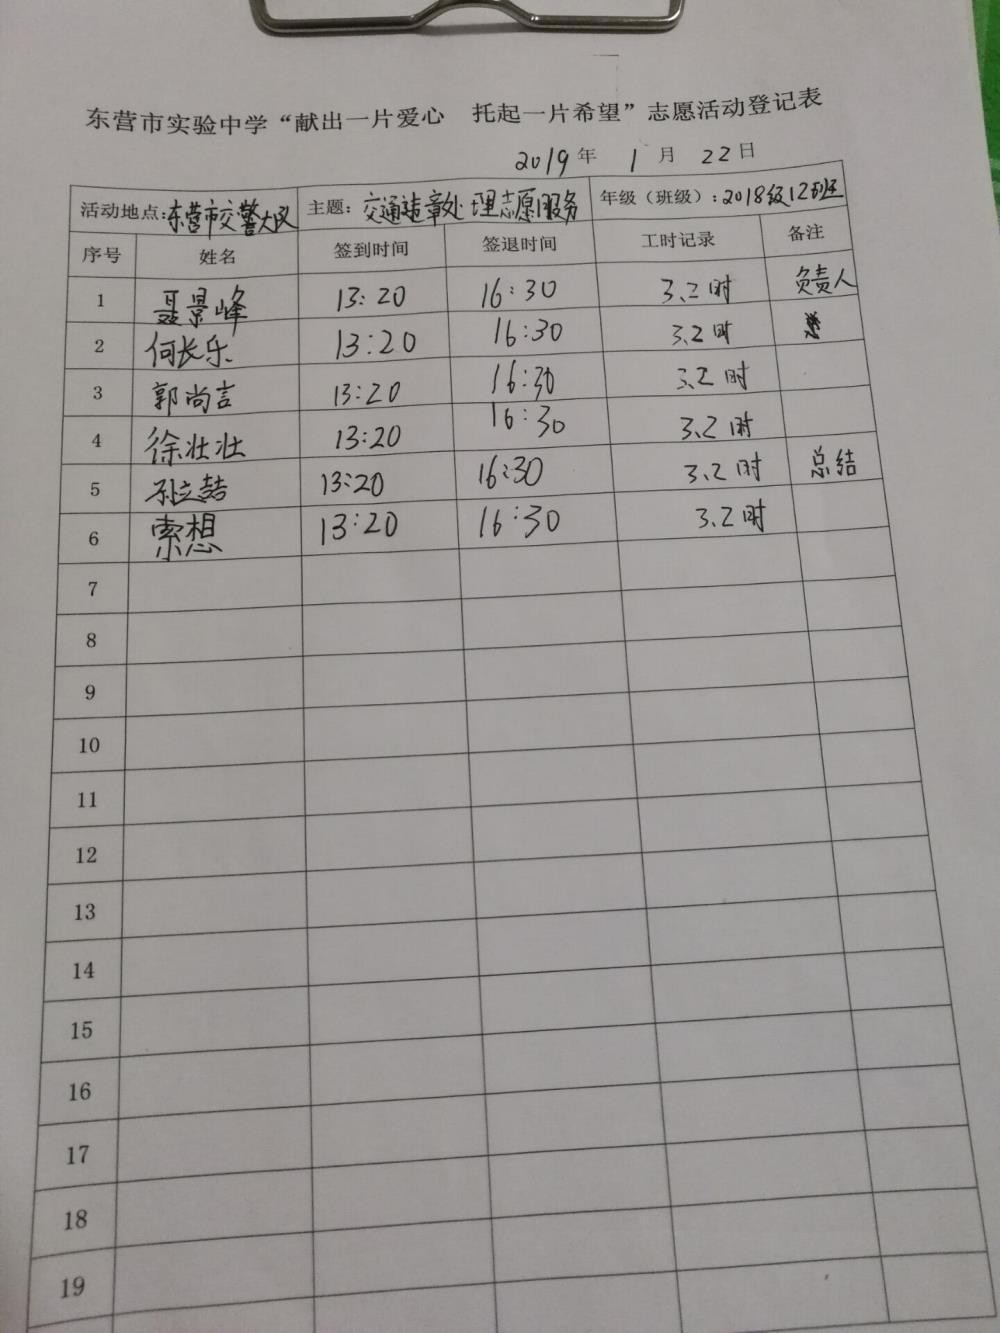 东营市实验中学“献出一片爱心 托起一片希望”志愿活动登记表
2019年 1月 22日
活动地点:东营市交警大队 主题:交通违章处理志愿服务 年级(班级):2018级12班
序号 姓名 签到时间 签退时间 工时记录 备注
1 聂景峰 13:20 16:30 3.2时 负责人
2 何长乐 13:20 16:30 3.2时
3 郭尚言 13:20 16:30 3.2时
4 徐壮壮 13:20 16:30 3.2时
5 孙立喆 13:20 16:30 3.2时 总结
6 索想 13:20 16:30 3.2时
7
8
9
10
11
12
13
14
15
16
17
18
19